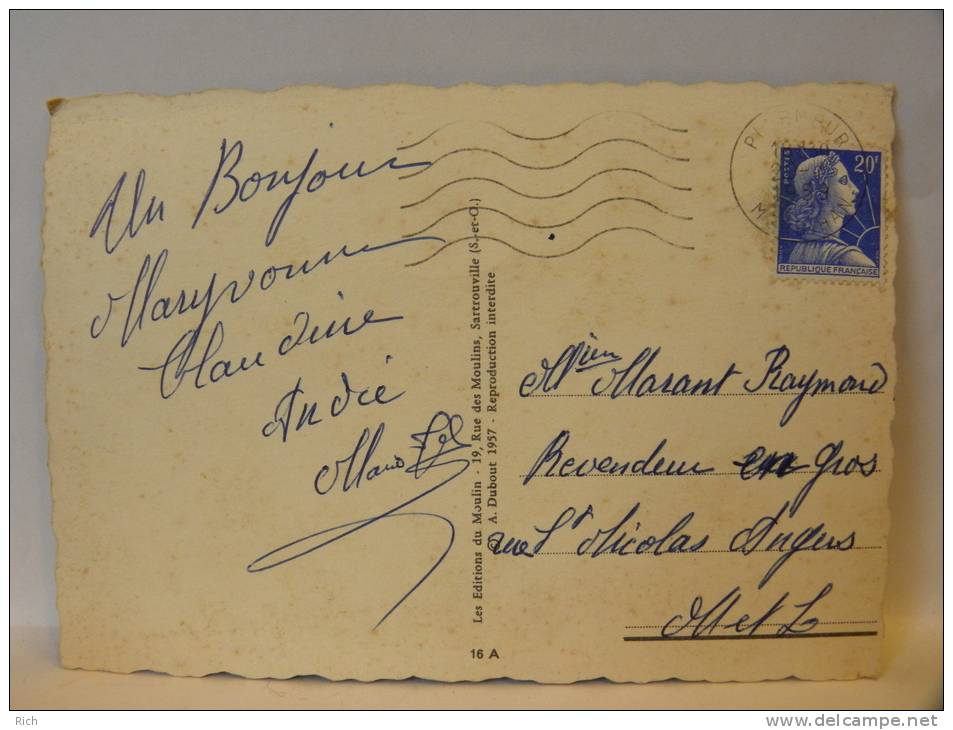 Un Bonjour
Maryvonne
Claudine
André
Les Editions du Moulin - 19, Rue des Moulins, Sartrouville (S.-et-O.)
© A. Dubout 1957 - Reproduction interdite
16 A
POSTES
20F
REPUBLIQUE FRANÇAISE
Mr Marant Raymond
Revendeur en gros
rue St Nicolas Angers
M et L
Rich
www.delcampe.net